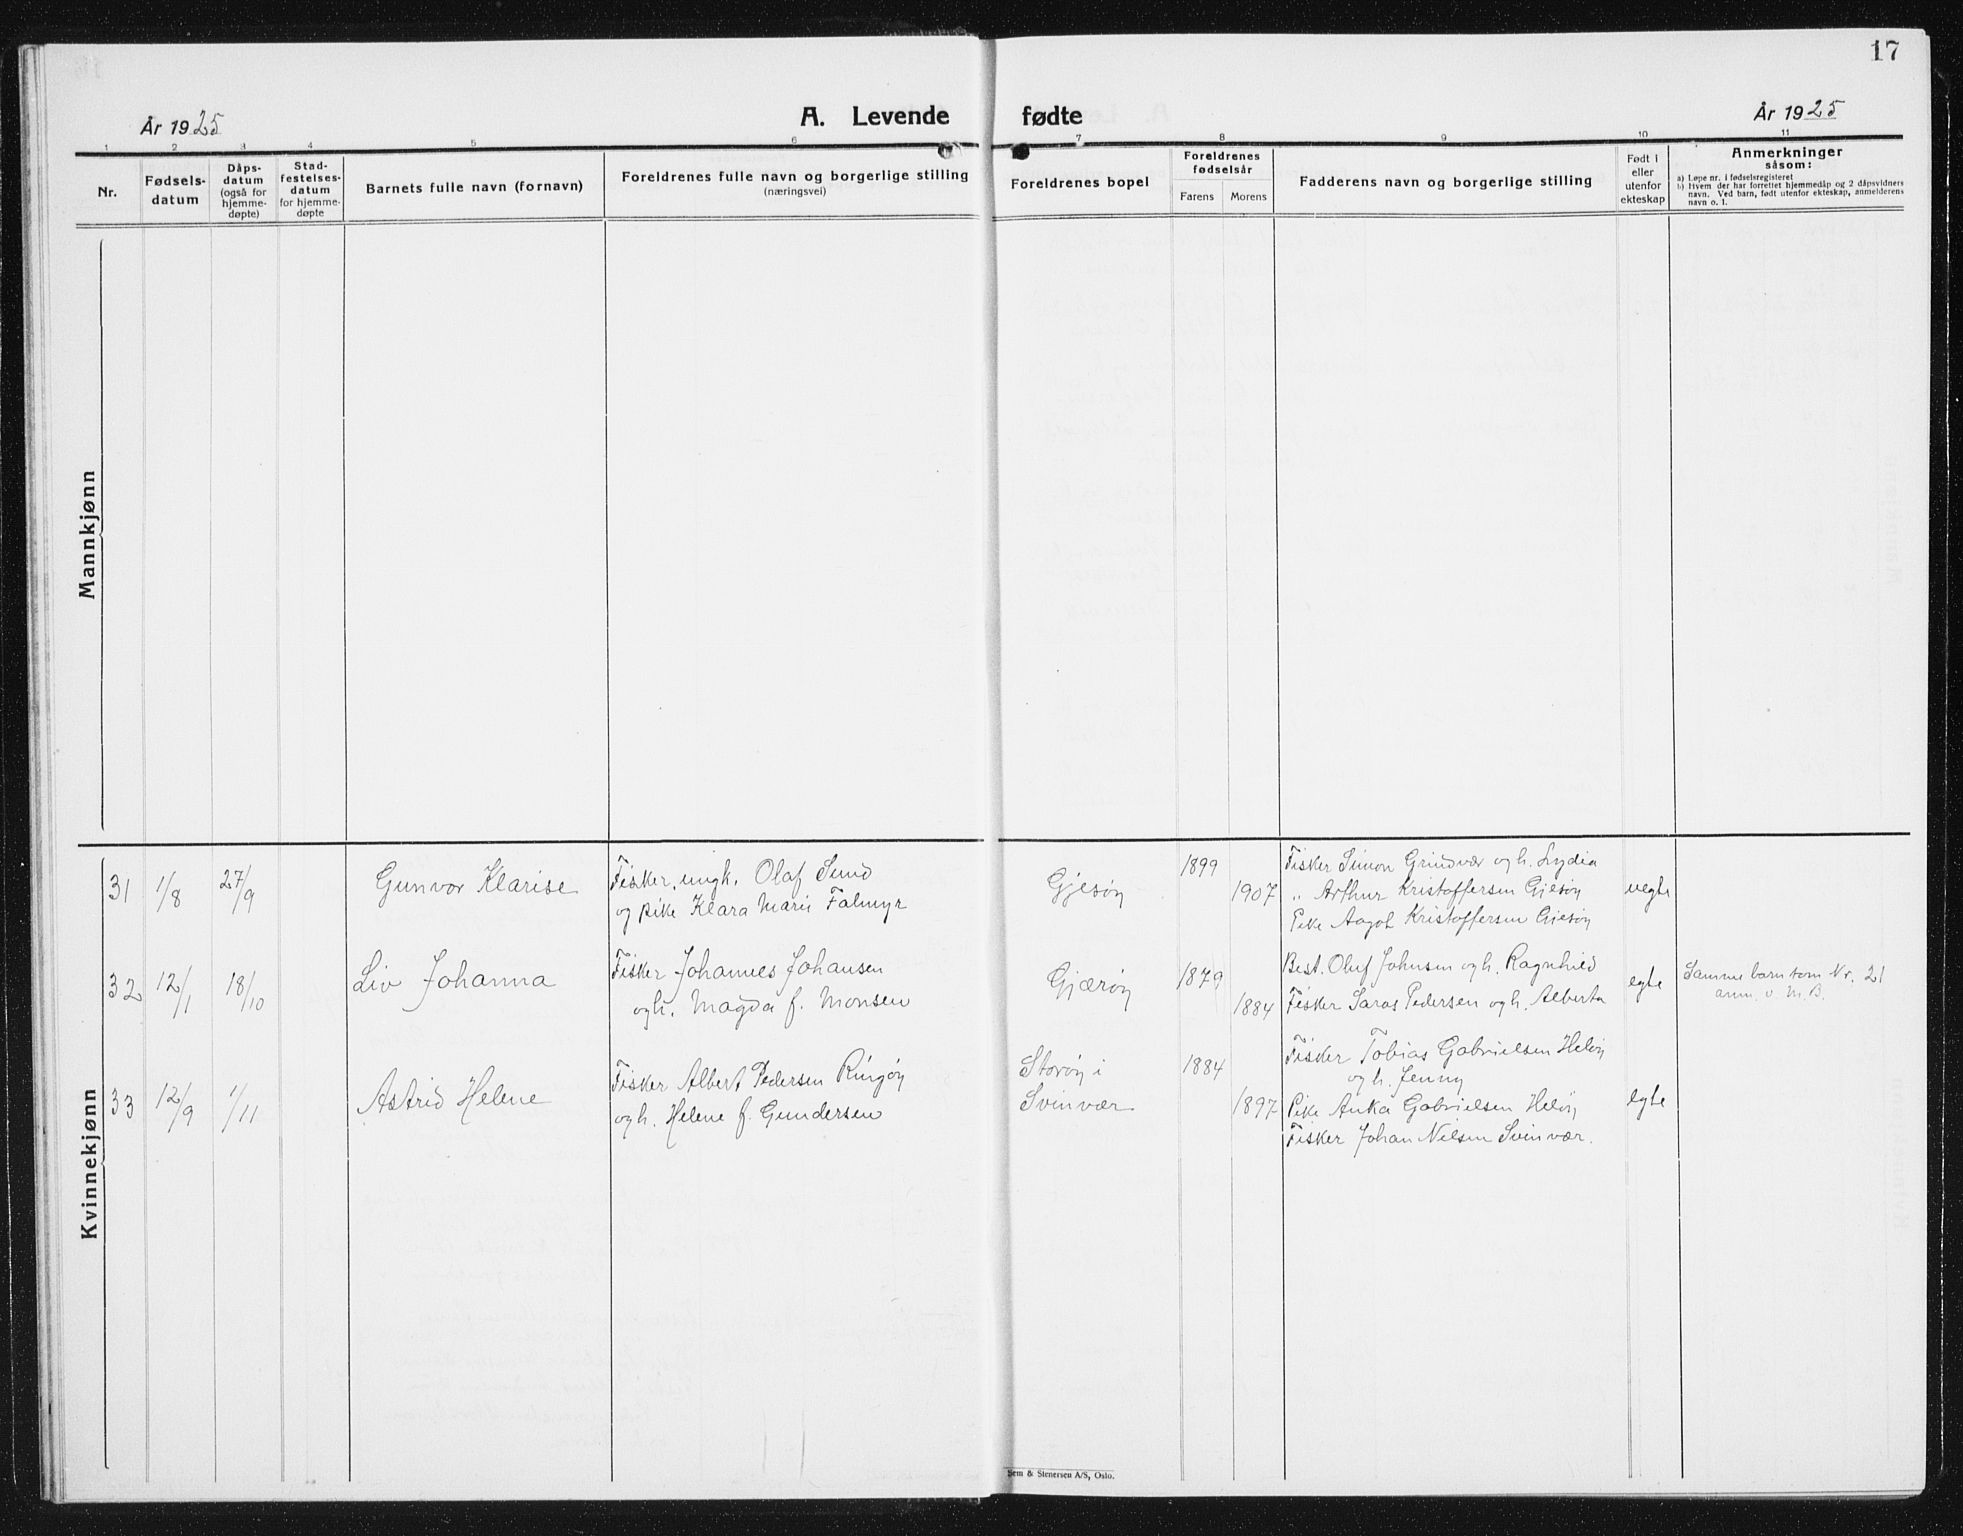 17
År 1925
A. Levende fødte
År 1925
1 2 3 4 5 6 7 8 9 10 11
Nr.
Fødsels-
datum
Dåps-
datum
(også for
hjemme-
døpte)
Stad-
festelses-
datum
for hjemme-
døpte
Barnets fulle navn (fornavn)
Foreldrenes fulle navn og borgerlige stilling
(næringsvei)
Foreldrenes bopel
Foreldrenes
fødselsår
Farens Morens
Fadderens navn og borgerlige stilling
Født i
eller
utenfor
ekteskap
Anmerkninger
såsom:
a) Løpe nr. i fødselsregisteret
b) Hvem der har forrettet hjemmedåp og 2 dåpsvidners
navn. Ved barn, født utenfor ekteskap, anmelderens
navn o. l.
Mannkjønn
Kvinnekjønn
31 1/8 27/9 Gunvor Klarise
Fisker, ungk. Olaf Sund
og pike Klara Marie Falmyr
Gjesøy
1899
1907
Fisker Simon Grindvær og h. Lydia
„ Arthur Kristoffersen Gjesøy
Pike Aagot Kristoffersen Gjesøy
uegte
32 12/1 18/10 Liv Johanna
Fisker Johannes Johansen
og h. Magda f. Monsen
Gjærøy
1879
1884
Best. Oluf Johnsen og h. Ragnhild
Fisker Saras Pedersen og h. Alberta
egte
Samme barn som Nr. 21
anm. v. M.B.
33 12/9 1/11 Astrid Helene
Fisker Albert Pedersen Ringøy
og h. Helene f. Gundersen
Storøy i
Svinvær
1884
1897
Fisker Tobias Gabrielsen Heløy
og h. Jenny
Pike Anka Gabrielsen Heløy
Fisker Johan Nilsen Svinvær.
egte
Sem & Stenersen A/S, Oslo.